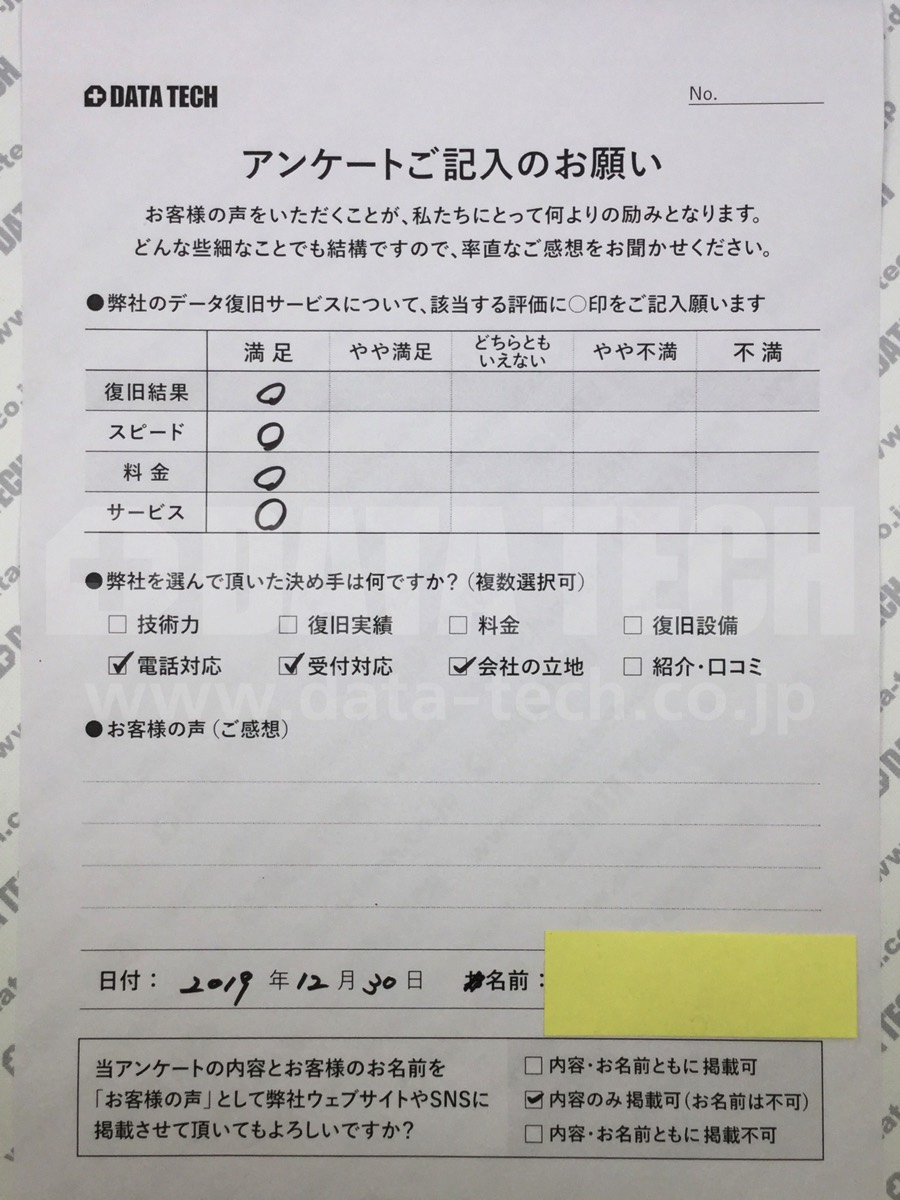 DATA TECH
No.
アンケートご記入のお願い
お客様の声をいただくことが、私たちにとって何よりの励みとなります。
どんな些細なことでも結構ですので、率直なご感想をお聞かせください。
●弊社のデータ復旧サービスについて、該当する評価に○印をご記入願います
満足 やや満足 どちらとも いえない やや不満 不満
復旧結果 ○
スピード ○
料金 ○
サービス ○
DATA TECH
●弊社を選んで頂いた決め手は何ですか?（複数選択可）
□ 技術力 □ 復旧実績 □ 料金 □ 復旧設備
☑ 電話対応 ☑ 受付対応 ☑ 会社の立地 □ 紹介・口コミ
www.data-tech.co.jp
●お客様の声（ご感想）
日付： 2019 年 12 月 30 日 名前：
当アンケートの内容とお客様のお名前を
「お客様の声」として弊社ウェブサイトやSNSに
掲載させて頂いてもよろしいですか?
□ 内容・お名前ともに 掲載可
☑ 内容のみ 掲載可（お名前は不可）
□ 内容・お名前ともに 掲載不可